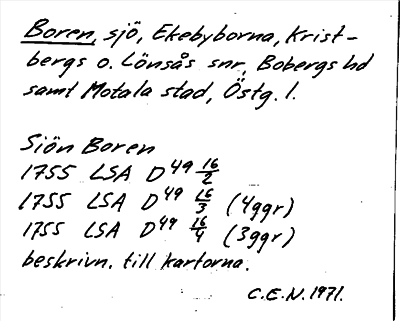 Boren, sjö, Ekebyborna, Krist-
bergs o. Lönsås snr, Bobergs hd
samt Motala stad, Östg. l.
Siön Boren
1755 LSA D49 16/2
1755 LSA D49 16/3 (4ggr)
1755 LSA D49 16/4 (3ggr)
beskrivn. till kartorna.
C.E.N. 1971.